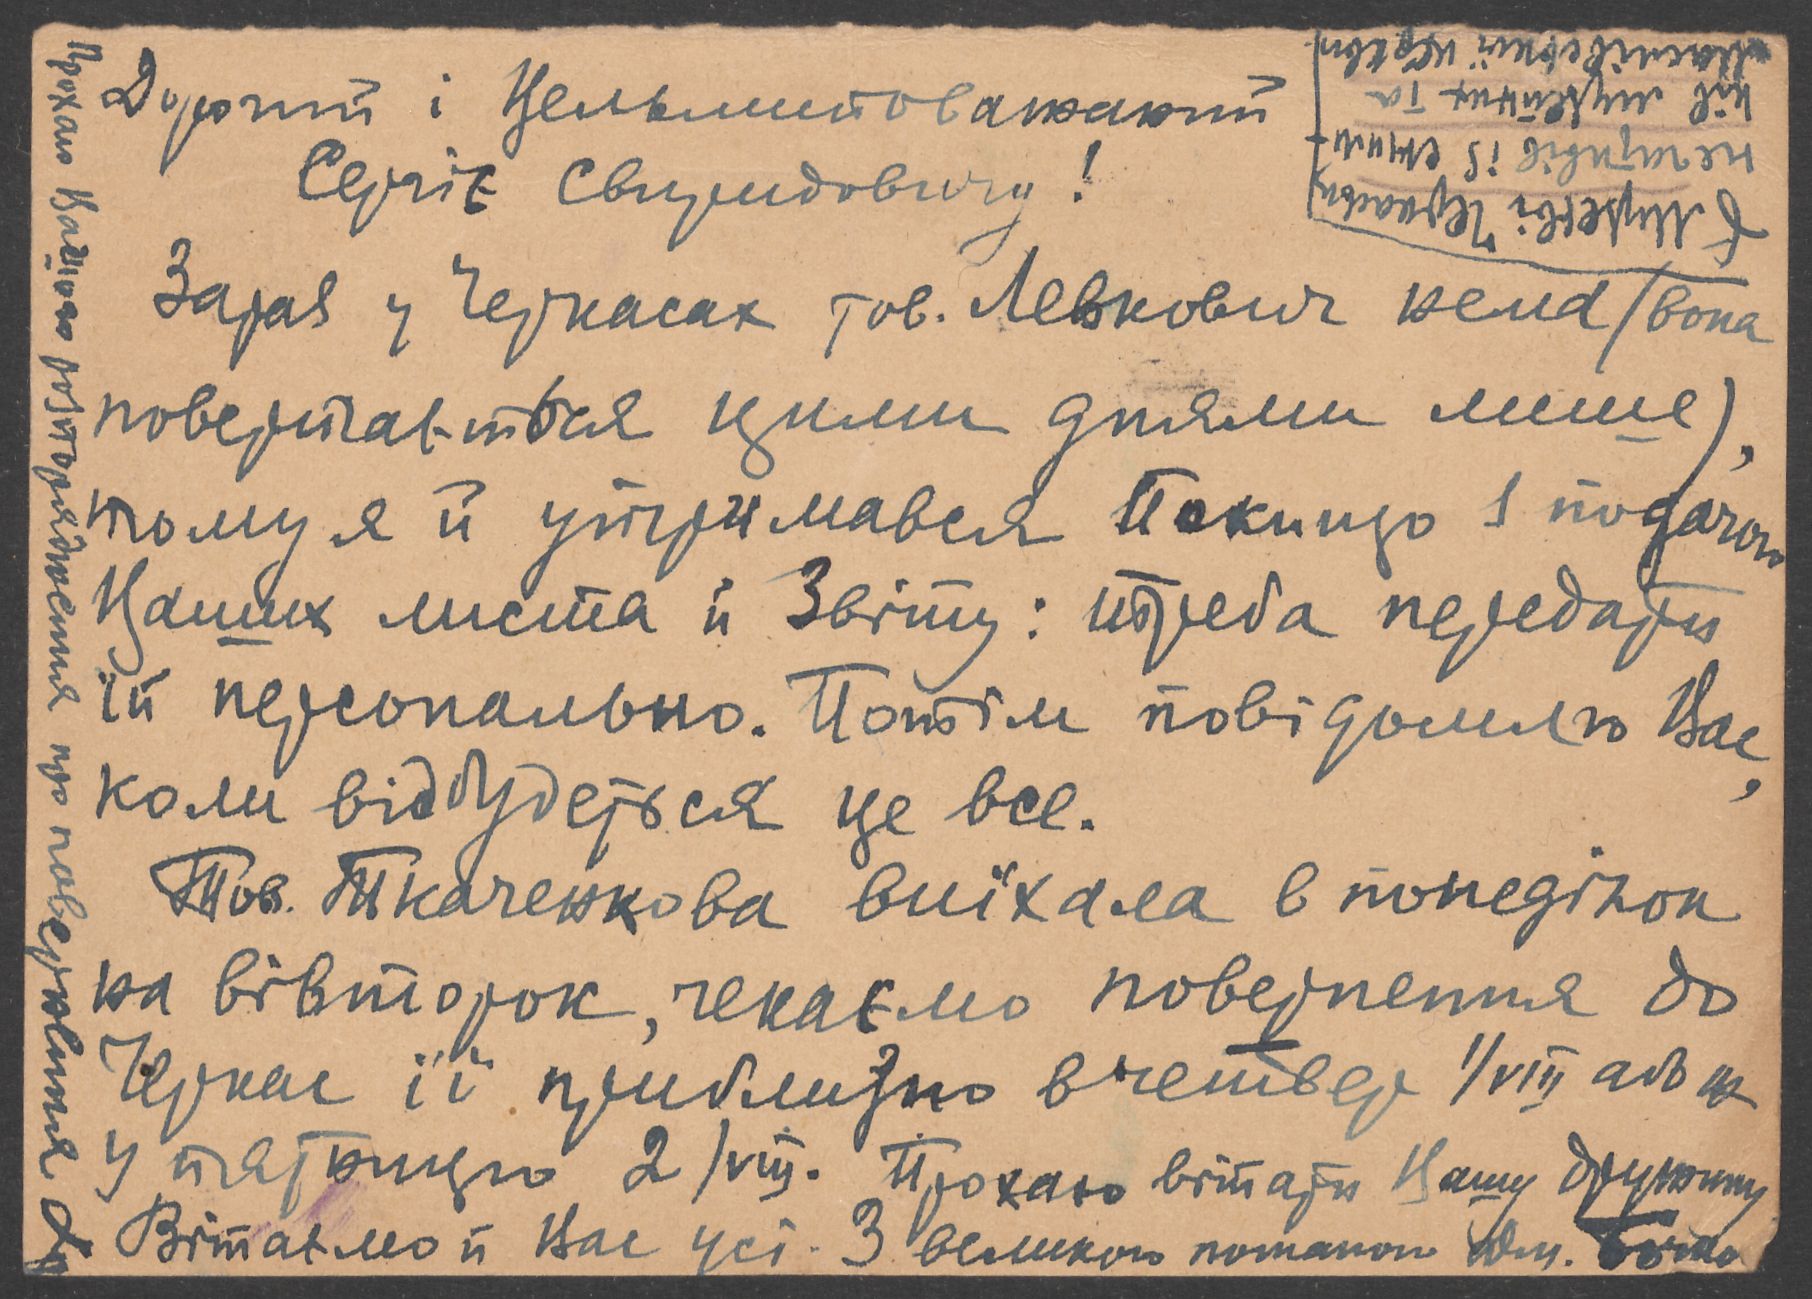 Дорогий і Вельмишановний
Сергіє Свиридовичу!
Зараз у Черкасах тов. Левкович нема (вона
повертається цими днями лише),
тому я й утримався покищо з подачою
Ваших листа й Звіту: треба передати
їй персонально. Потім повідомлю Вас,
коли відбудеться це все.
Тов. Ткаченкова виїхала в понеділок
на вівторок, чекаємо повернення до
Черкас її приблизно в четвер 1/VIII або ж
у п'ятницю 2/VIII. Прохаю вітати Вашу дружину
Вітаємо й Вас усі. З великою пошаною Дм.
Прохаю Вашого розпорядження про повернення
б. Музеєві Черкаськ
негативів із
ків музейних та
Мошнівської церкви